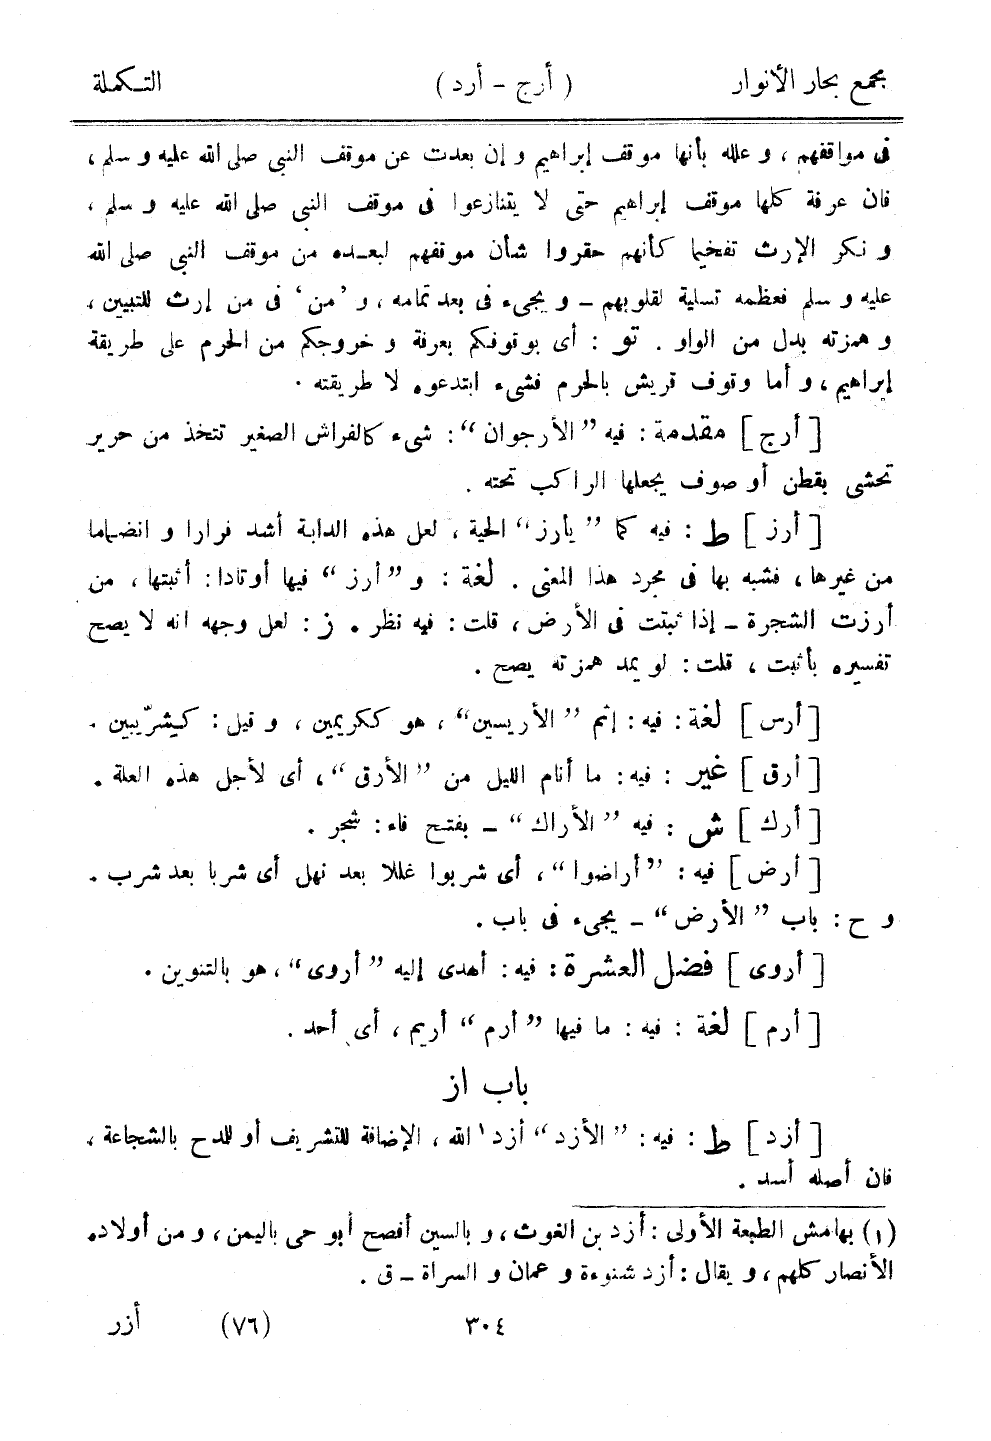 مجمع بحار الأنوار ( أرج - أرد ) التكملة
فى مواقفهم ، و علله بأنها موقف إبراهيم و إن بعدت عن موقف النبى صلى الله عليه و سلم ،
فان عرفة كلها موقف إبراهيم حتى لا يتنازعوا فى موقف النبى صلى الله عليه و سلم ،
و نكر الإرث تفخيما كأنهم حقروا شأن موقفهم لبعده من موقف النبى صلى الله
عليه و سلم فعظمه تسلية لقلوبهم – و يجىء فى بعد تمامه ، و ’من‘ فى من إرث للتبيين ،
و همزته بدل من الواو . تو : أى بوقوفكم بعرفة و خروجكم من الحرم على طريقة
إبراهيم ، و أما وقوف قريش بالحرم فشىء ابتدعوه لا طريقته .
[ أرج ] مقدمة : فيه ”الأرجوان“ : شىء كالفراش الصغير تتخذ من حرير
تحشى بقطن أو صوف يجعلها الراكب تحته .
[ أرز ] ط : فيه كما ” يأرز“ الحية ، لعل هذه الدابة أشد فرارا و انضماما
من غيرها ، فشبه بها فى مجرد هذا المعنى . لغة : و ”أرز“ فيها أوتادا : أثبتها ، من
أرزت الشجرة – إذا ثبتت فى الأرض ، قلت : فيه نظر . ز : لعل وجهه انه لا يصح
تفسيره بأثبت ، قلت : لو يمد همزته يصح .
[ أرس ] لغة : فيه : إثم ” الأريسين“ ، هو ككريمين ، و قيل : كيشرّيبين .
[ أرق ] غير : فيه : ما أنام الليل من ” الأرق“ ، أى لأجل هذه العلة .
[ أرك ] ش : فيه ”الأراك“ – بفتح فاء : شجر .
[ أرض ] فيه : ”أراضوا“ ، أى شربوا غللا بعد نهل أى شربا بعد شرب .
و ح : باب ” الأرض“ – يجىء فى باب .
[ أروى ] فضل العشرة : فيه : أهدى إليه ”أروى“ ، هو بالتنوين .
[ أرم ] لغة : فيه : ما فيها ” أرم“ أريم ، أى أحد .
باب از
[ أزد ] ط : فيه : ” الأزد“ أزد ١ الله ، الإضافة للتشريف أو للمدح بالشجاعة ،
فان أصله أسد .
(١) بهامش الطبعة الأولى : أزد بن الغوث ، و بالسين أفصح أبو حى باليمن ، و من أولاده
الأنصار كلهم ، و يقال : أزد شنوءة و عمان و السراة – ق .
٣٠٤ (٧٦) أزر